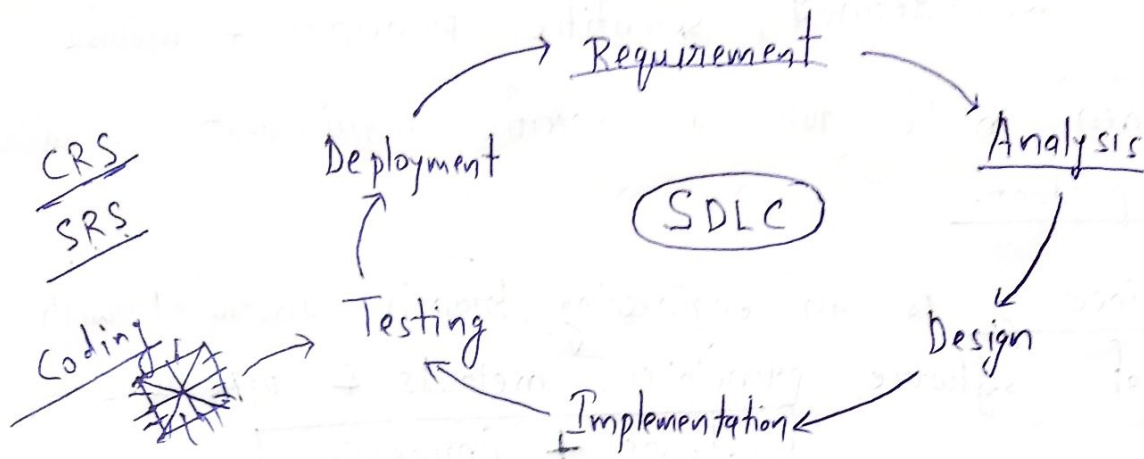 Requirement
Analysis
Design
Implementation
Testing
Deployment
SDLC
CRS
SRS
Coding